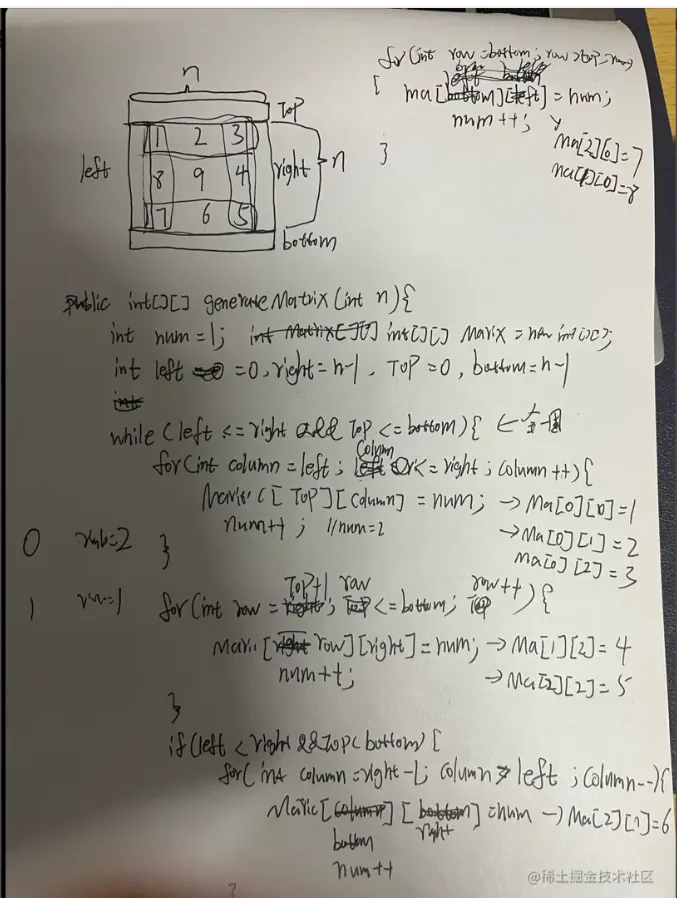 n
TOP
1 2 3
left 8 9 4 right n
7 6 5
bottom
for(int row = bottom; row > top
{
ma[][left] = num;
num++;
ma[2][0]=7
ma[1][0]=8
}
public int[][] generateMatrix(int n){
int num=1; int[][] Marix = new int[][];
int left =0, right = n-1, TOP =0, bottom = n-1
while (left <= right && TOP <= bottom){
for(int column = left; column <= right; column++){
[TOP][column] = num; → Ma[0][0]=1
num++; //num=2 → Ma[0][1]=2
0 =2 } ma[0][2]=3
1 =1 for(int row = TOP+1; row <= bottom; row++){
[row][right] = num; → Ma[1][2]=4
num++; → Ma[2][2]=5
}
if(left < right && TOP < bottom){
for(int column = right-1; column > left; column--){
[bottom][right] = num → Ma[2][1]=6
num++
@稀土掘金技术社区